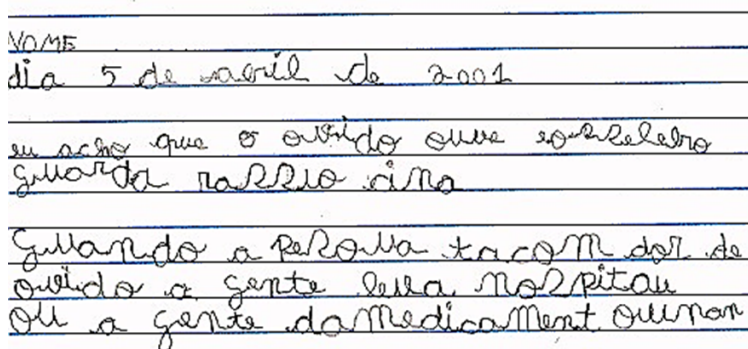 NOME
dia 5 de abril de 2001
eu acho que o ouvido ouve eo
guarda rassio cina
Guando a pesoua ta com dor de
ouvido a gente leva nospitau
ou a gente da medicament ou nan